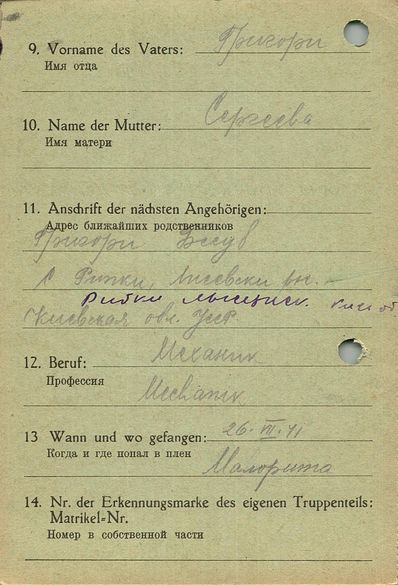 9. Vorname des Vaters: Григори
Имя отца
10. Name der Mutter: Сергеева
Имя матери
11. Anschrift der nächsten Angehörigen:
Адрес ближайших родственников
Григори
с Рипки,
Рибки
Киевская обл. Усср.
12. Beruf: Механик
Профессия
Mechanik
13 Wann und wo gefangen: 26. VII. 41
Когда и где попал в плен
Малорита
14. Nr. der Erkennungsmarke des eigenen Truppenteils:
Matrikel-Nr.
Номер в собственной части